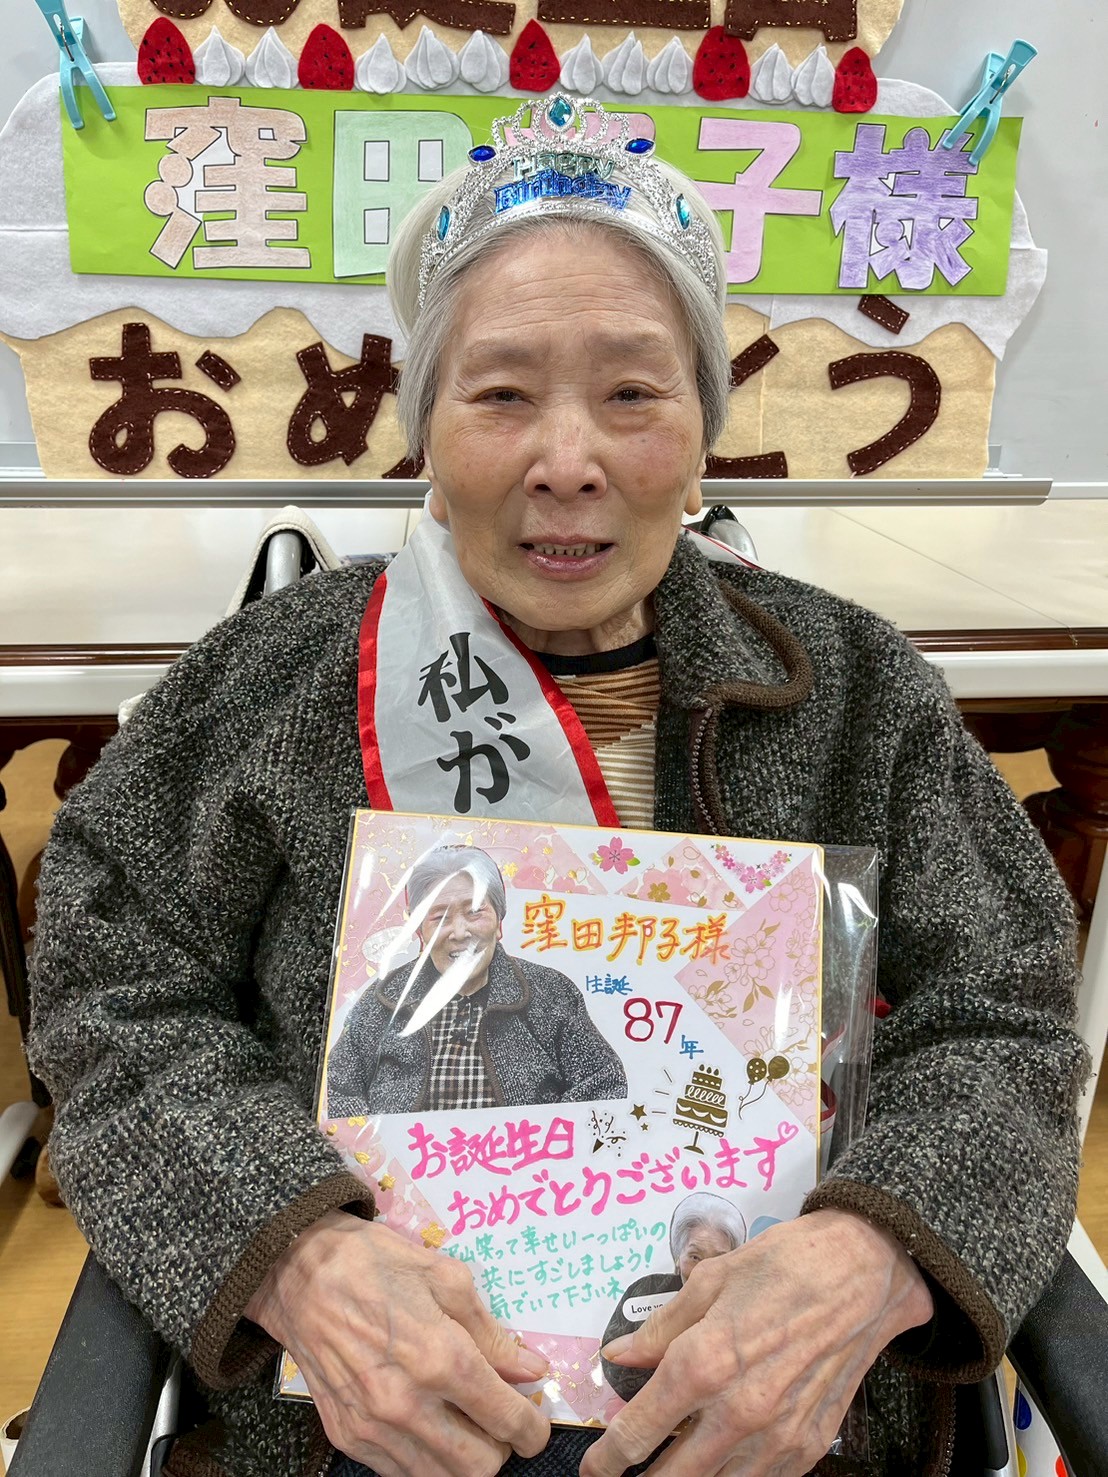 窪田 子様
おめ とう
Happy
Birthday
私が
窪田邦子様
生誕
87年
お誕生日
おめでとうございます
沢山笑って幸せいーっぱいの
共にすごしましょう!
気でいて下さいネ
Love yo